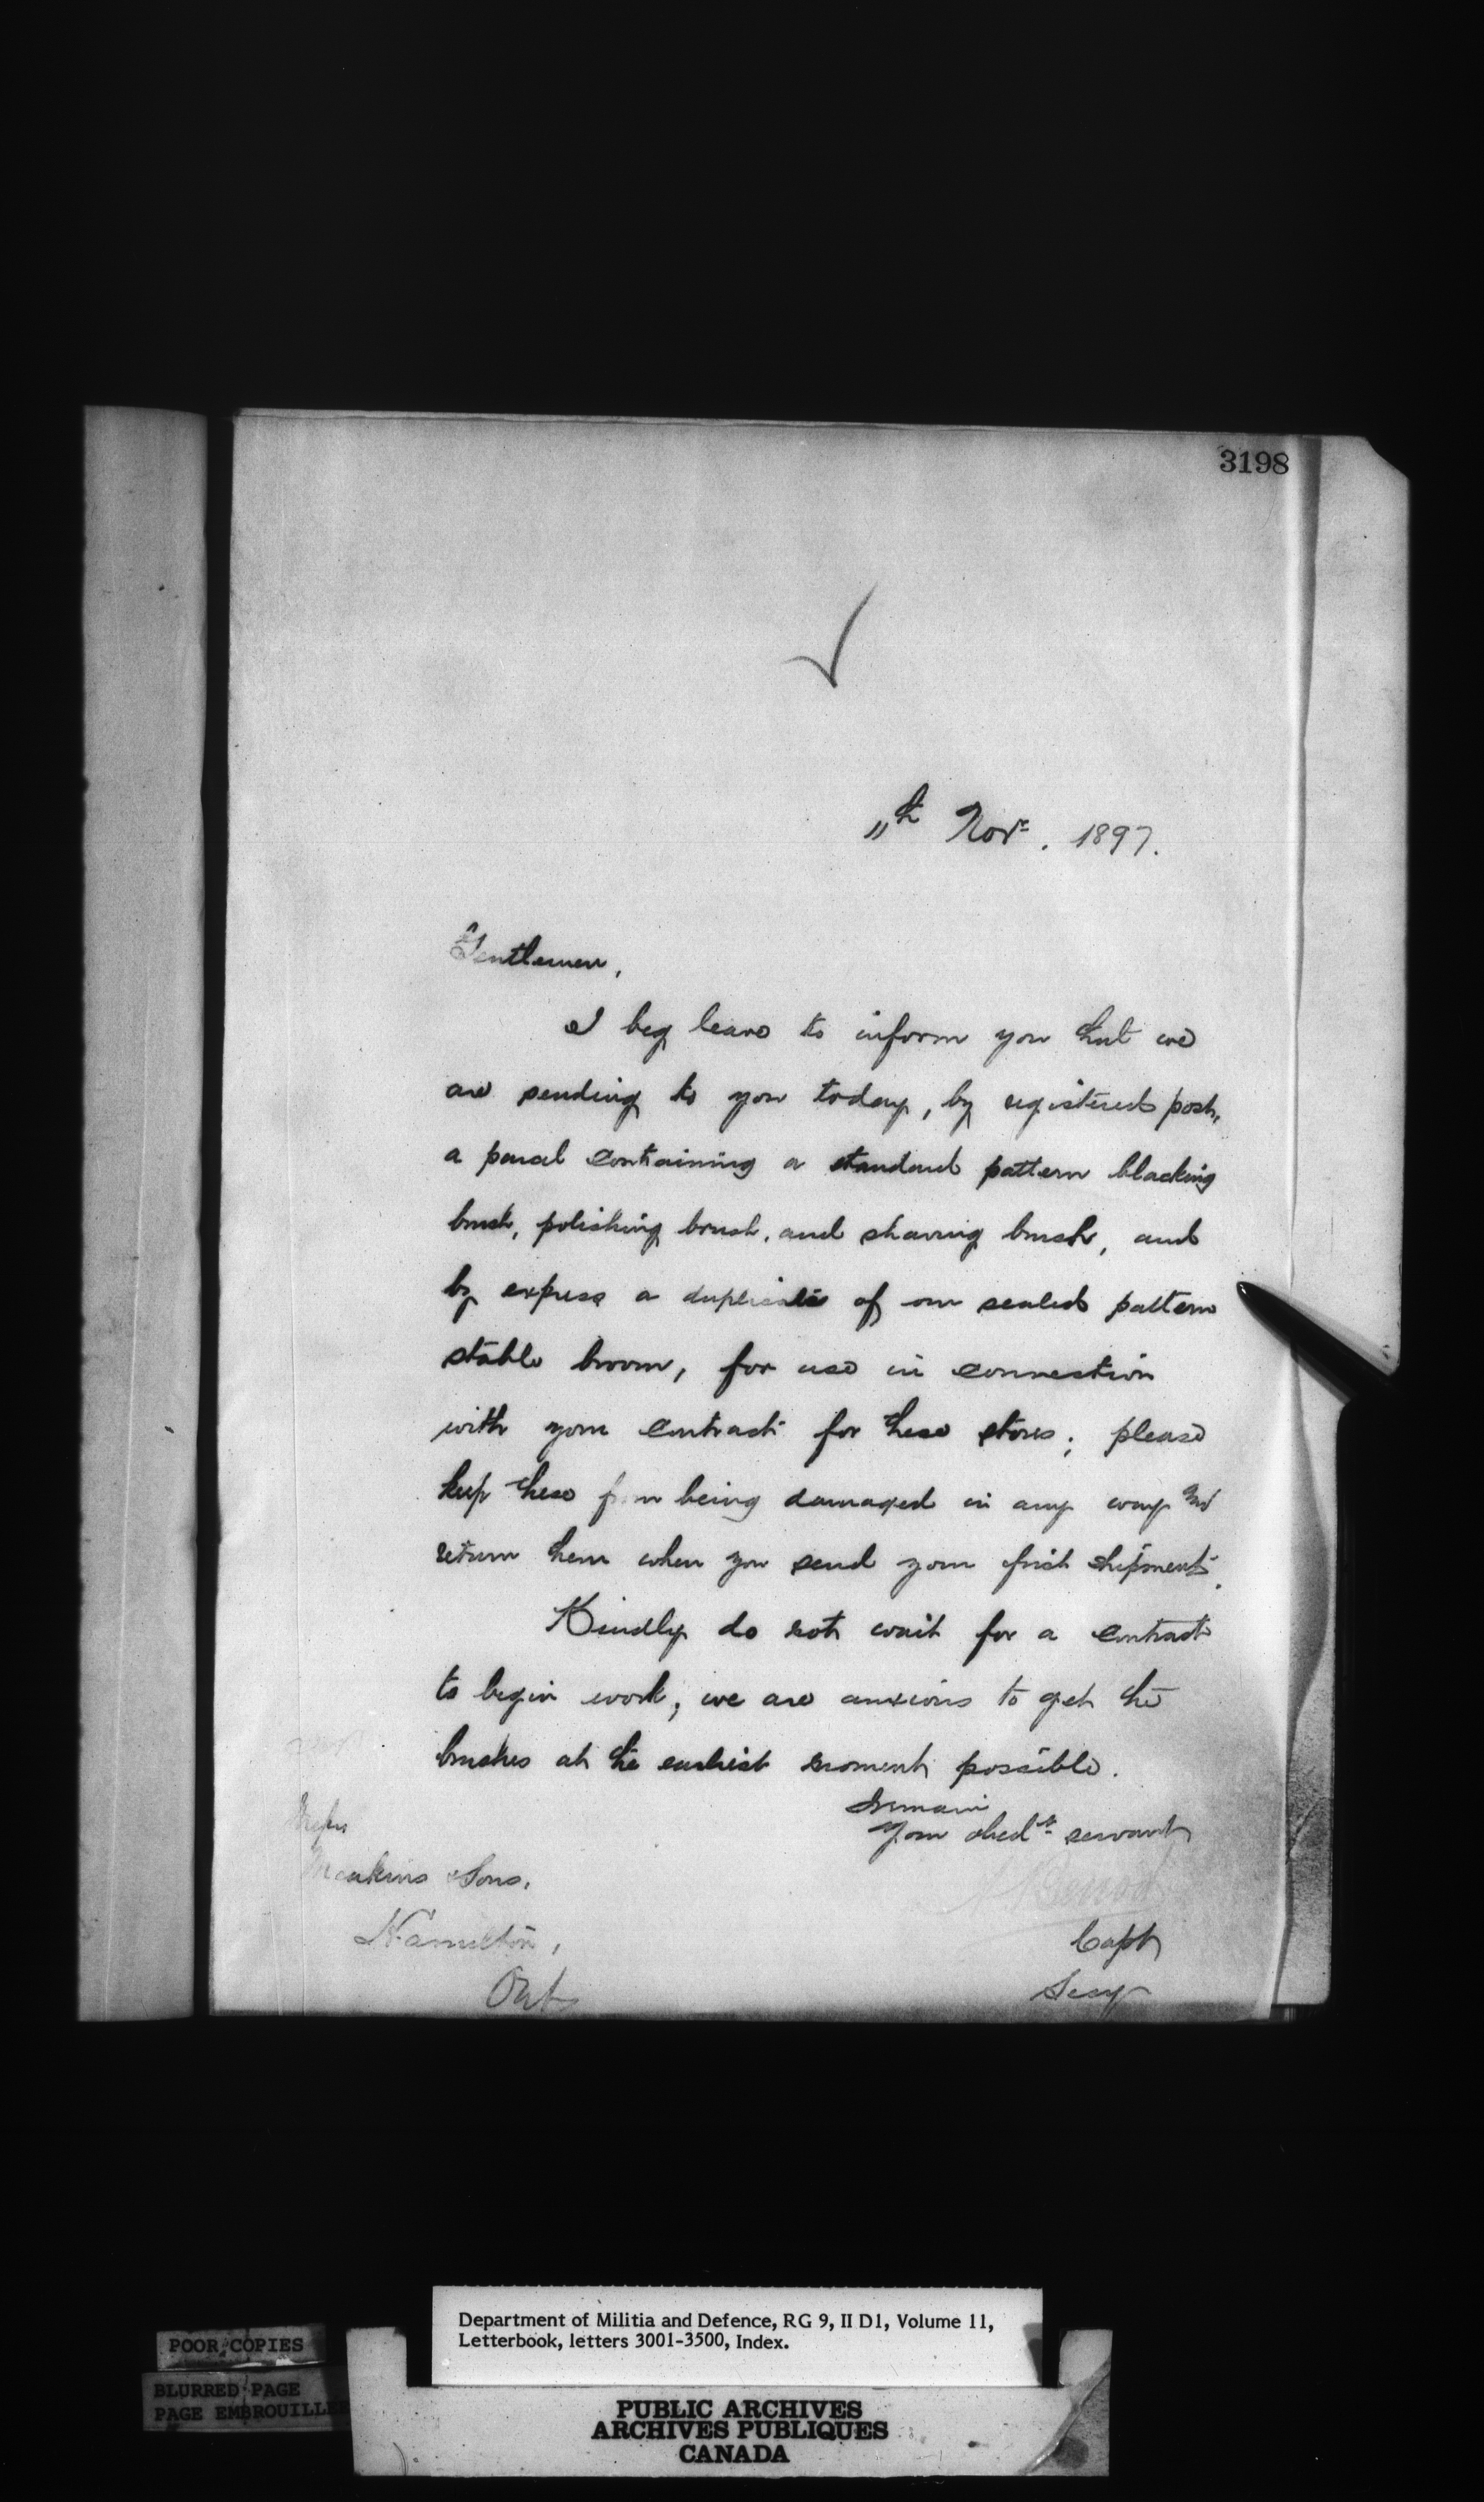 3198
11th Novr. 1897.
Gentlemen,
I beg leave to inform you that we
are sending to you today, by registered post,
a parcel containing a standard pattern blacking
brush, polishing brush, and shaving brush, and
by express a duplicate of our sealed pattern
stable broom, for use in connection
with your contract for these stores; please
keep these from being damaged in any way and
return them when you send your first shipment.
Kindly do not wait for a contract
to begin work, we are anxious to get the
brushes at the earliest moment possible.
I remain
Your obedt servant
Meakins & Sons,
Hamilton,
Ont
Capt
Secy
Department of Militia and Defence, RG 9, II D1, Volume 11,
Letterbook, letters 3001-3500, Index.
POOR COPIES
BLURRED PAGE
PAGE EMBROUILLEE
PUBLIC ARCHIVES
ARCHIVES PUBLIQUES
CANADA